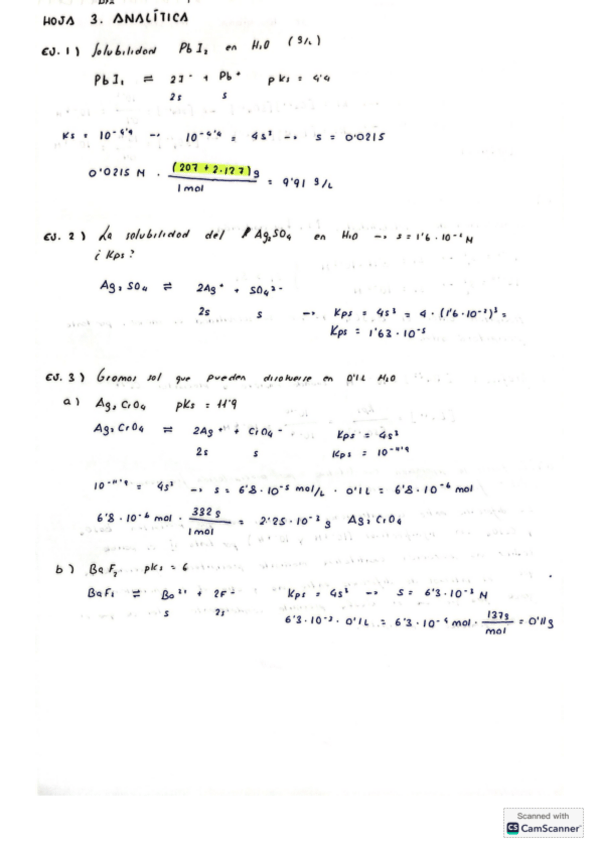 HOJA 3. ANALÍTICA
EJ. 1) Solubilidad PbI₂ en H₂O (g/L)
PbI₂ ⇌ 2I⁻ + Pb⁺ pKs = 4'4
2s s
Ks = 10⁻⁴'⁴ → 10⁻⁴'⁴ = 4s³ → s = 0'0215
0'0215 M · (207 + 2·127) g / 1 mol = 9'91 g/L
EJ. 2) La solubilidad del Ag₂SO₄ en H₂O → s = 1'6 · 10⁻² M
¿Kps?
Ag₂SO₄ ⇌ 2Ag⁺ + SO₄²⁻
2s s → Kps = 4s³ = 4 · (1'6 · 10⁻²)³ =
Kps = 1'63 · 10⁻⁵
EJ. 3) Gramos sol que pueden disolverse en 0'1L H₂O
a) Ag₂CrO₄ pKs = 11'9
Ag₂CrO₄ ⇌ 2Ag⁺ + CrO₄⁻ Kps = 4s³
2s s Kps = 10⁻¹¹'⁹
10⁻¹¹'⁹ = 4s³ → s = 6'8 · 10⁻⁵ mol/L · 0'1L = 6'8 · 10⁻⁶ mol
6'8 · 10⁻⁶ mol · 332 g / 1 mol = 2'25 · 10⁻³ g Ag₂CrO₄
b) BaF₂ pKs = 6
BaF₂ ⇌ Ba²⁺ + 2F⁻ Kps = 4s³ → s = 6'3 · 10⁻³ M
s 2s 6'3 · 10⁻³ · 0'1L = 6'3 · 10⁻⁴ mol · 137g / mol = 0'11g
Scanned with
CS CamScanner